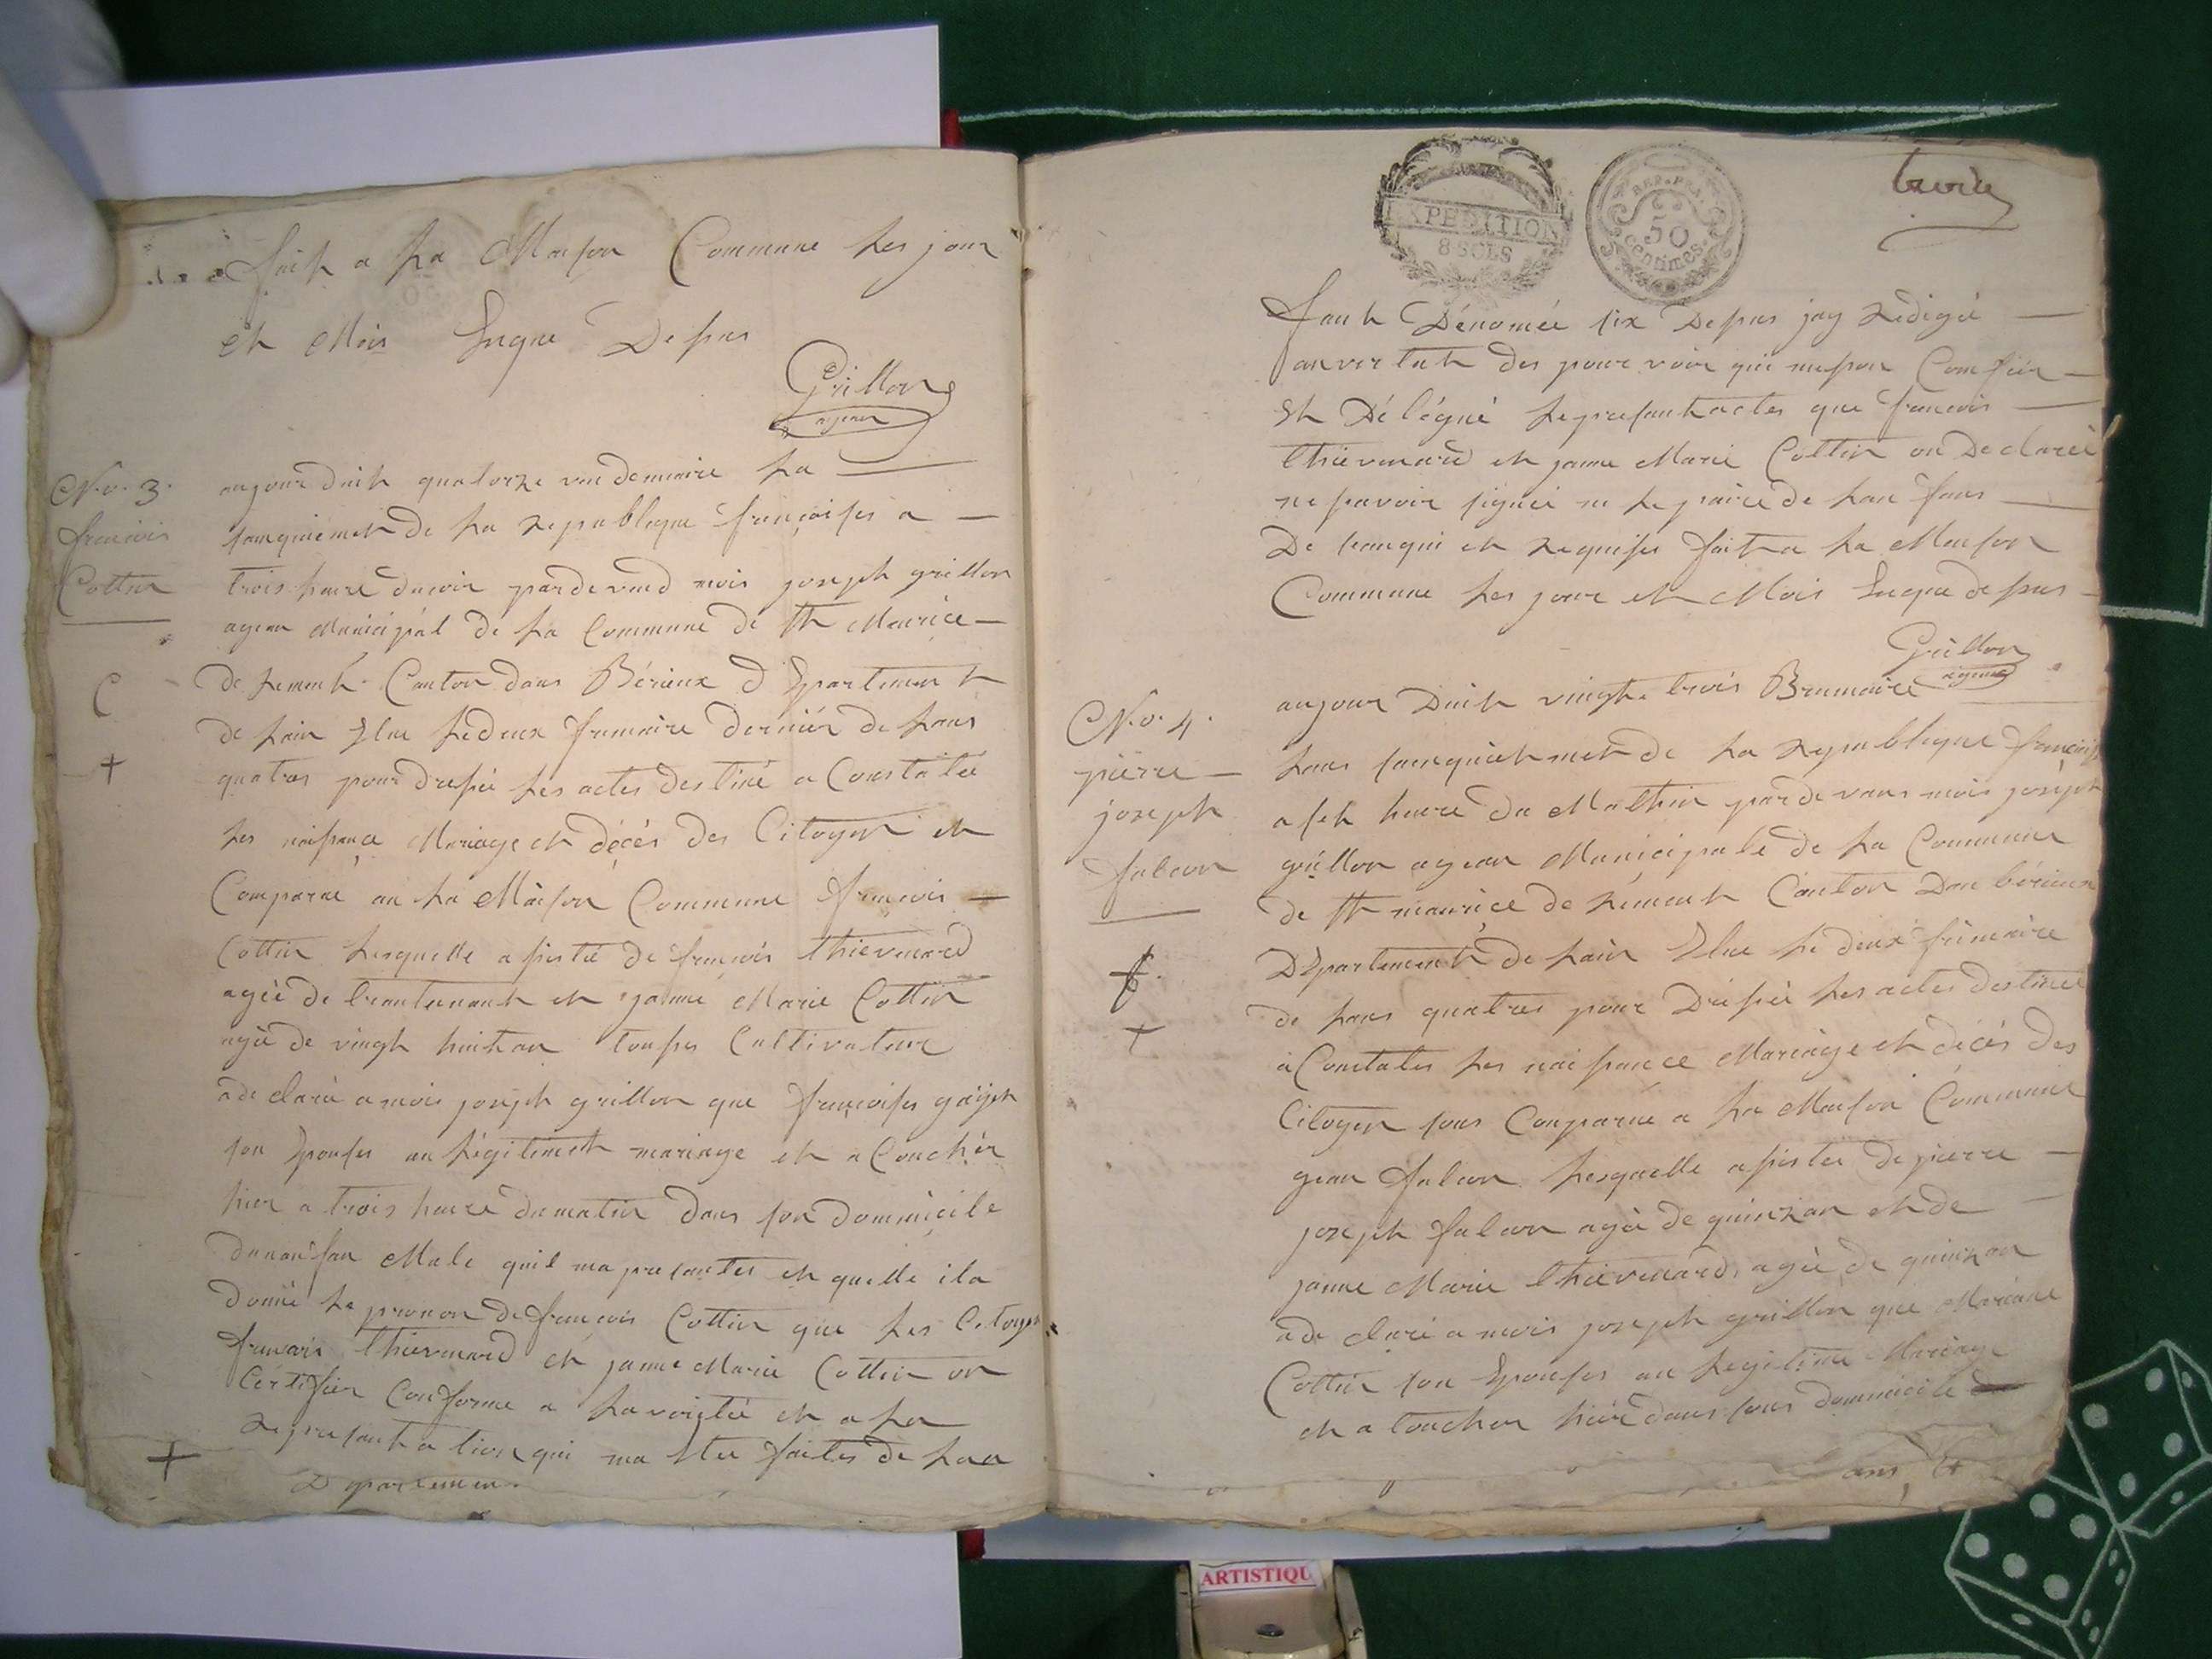 fait a La Maison Commune Les jour
et Mois Enque Desus
Grillon
agean
No. 3.
francois
Cottin
C
+
aujourduit quatorze vandemiaire La
sainquiemet de La Republique françoises a
trois heure du soir pardevand mois joseph grillon
agean Municipal de La Commune de St Maurice
de Rement Canton dans Bérieux dEpartement
de Lain Elue Le deux frimaire dernier de Lans
quatres pour dresée Les actes destiné a Constatée
Les naisance Mariage et décés des Citoyen et
Comparue au La Maison Commune francois
Cottin Lesquelle asistée de francois thievenard
agée de trante et janne Marie Cottin
agée de vingt huit an tousses Cultivateur
a de claré a mois joseph grillon que françoises
son Epouses au Légitimet mariage et a Couchér
hier a trois heure du matin dans son dommicile
dunanfan Male quil ma presantés et quelle ila
donné Le pronon de francois Cottin que Les Citoyen
francois thievenard et janne Marie Cottin on
Certifier Conforme a Lavoirtée et a La
Represantation qui ma Etee faites de Lan
+
Departemen.
EXPEDITION
8 SOLS
REP. FRA.
50
centimes.
fant Dénomée six Desus jay Redigée
anvertut des pouvoir qui meson Comfiér
Et Délégué Lepresant actes que francois
thievenard et janne Marie Cottin on Declarée
ne savoir signée ni Lepaire de Lan fans
De seanqui et Requises fait a La Maison
Commune Les jour et Mois Enque desus
Grillon
agean
No. 4.
pierre
joseph
falcon
+
aujour Duit vingt trois Brumaire
Lans sainquietmet de La Republique françoises
a set heure du Matthin pardevans mois joseph
grillon agean Municipale de La Commune
de St maurice de Rement Canton Dan bérieux
DEpartement de Lain Elue Le deux frimaire
de Lans quatres pour Dresée Les actes destinée
à Constates Les naisance Mariage et décés des
Citoyen sons Comparue a La Maison Commune
gean falcon Lesquelle asistée de pierre
joseph falcon agée de quinzan et de
janne Marie thievenard agée de quinzan
a de claré a mois joseph grillon que Mariane
Cottin son Epouses au Legitime Mariage
et a Coucher hiér dans sons dommicile